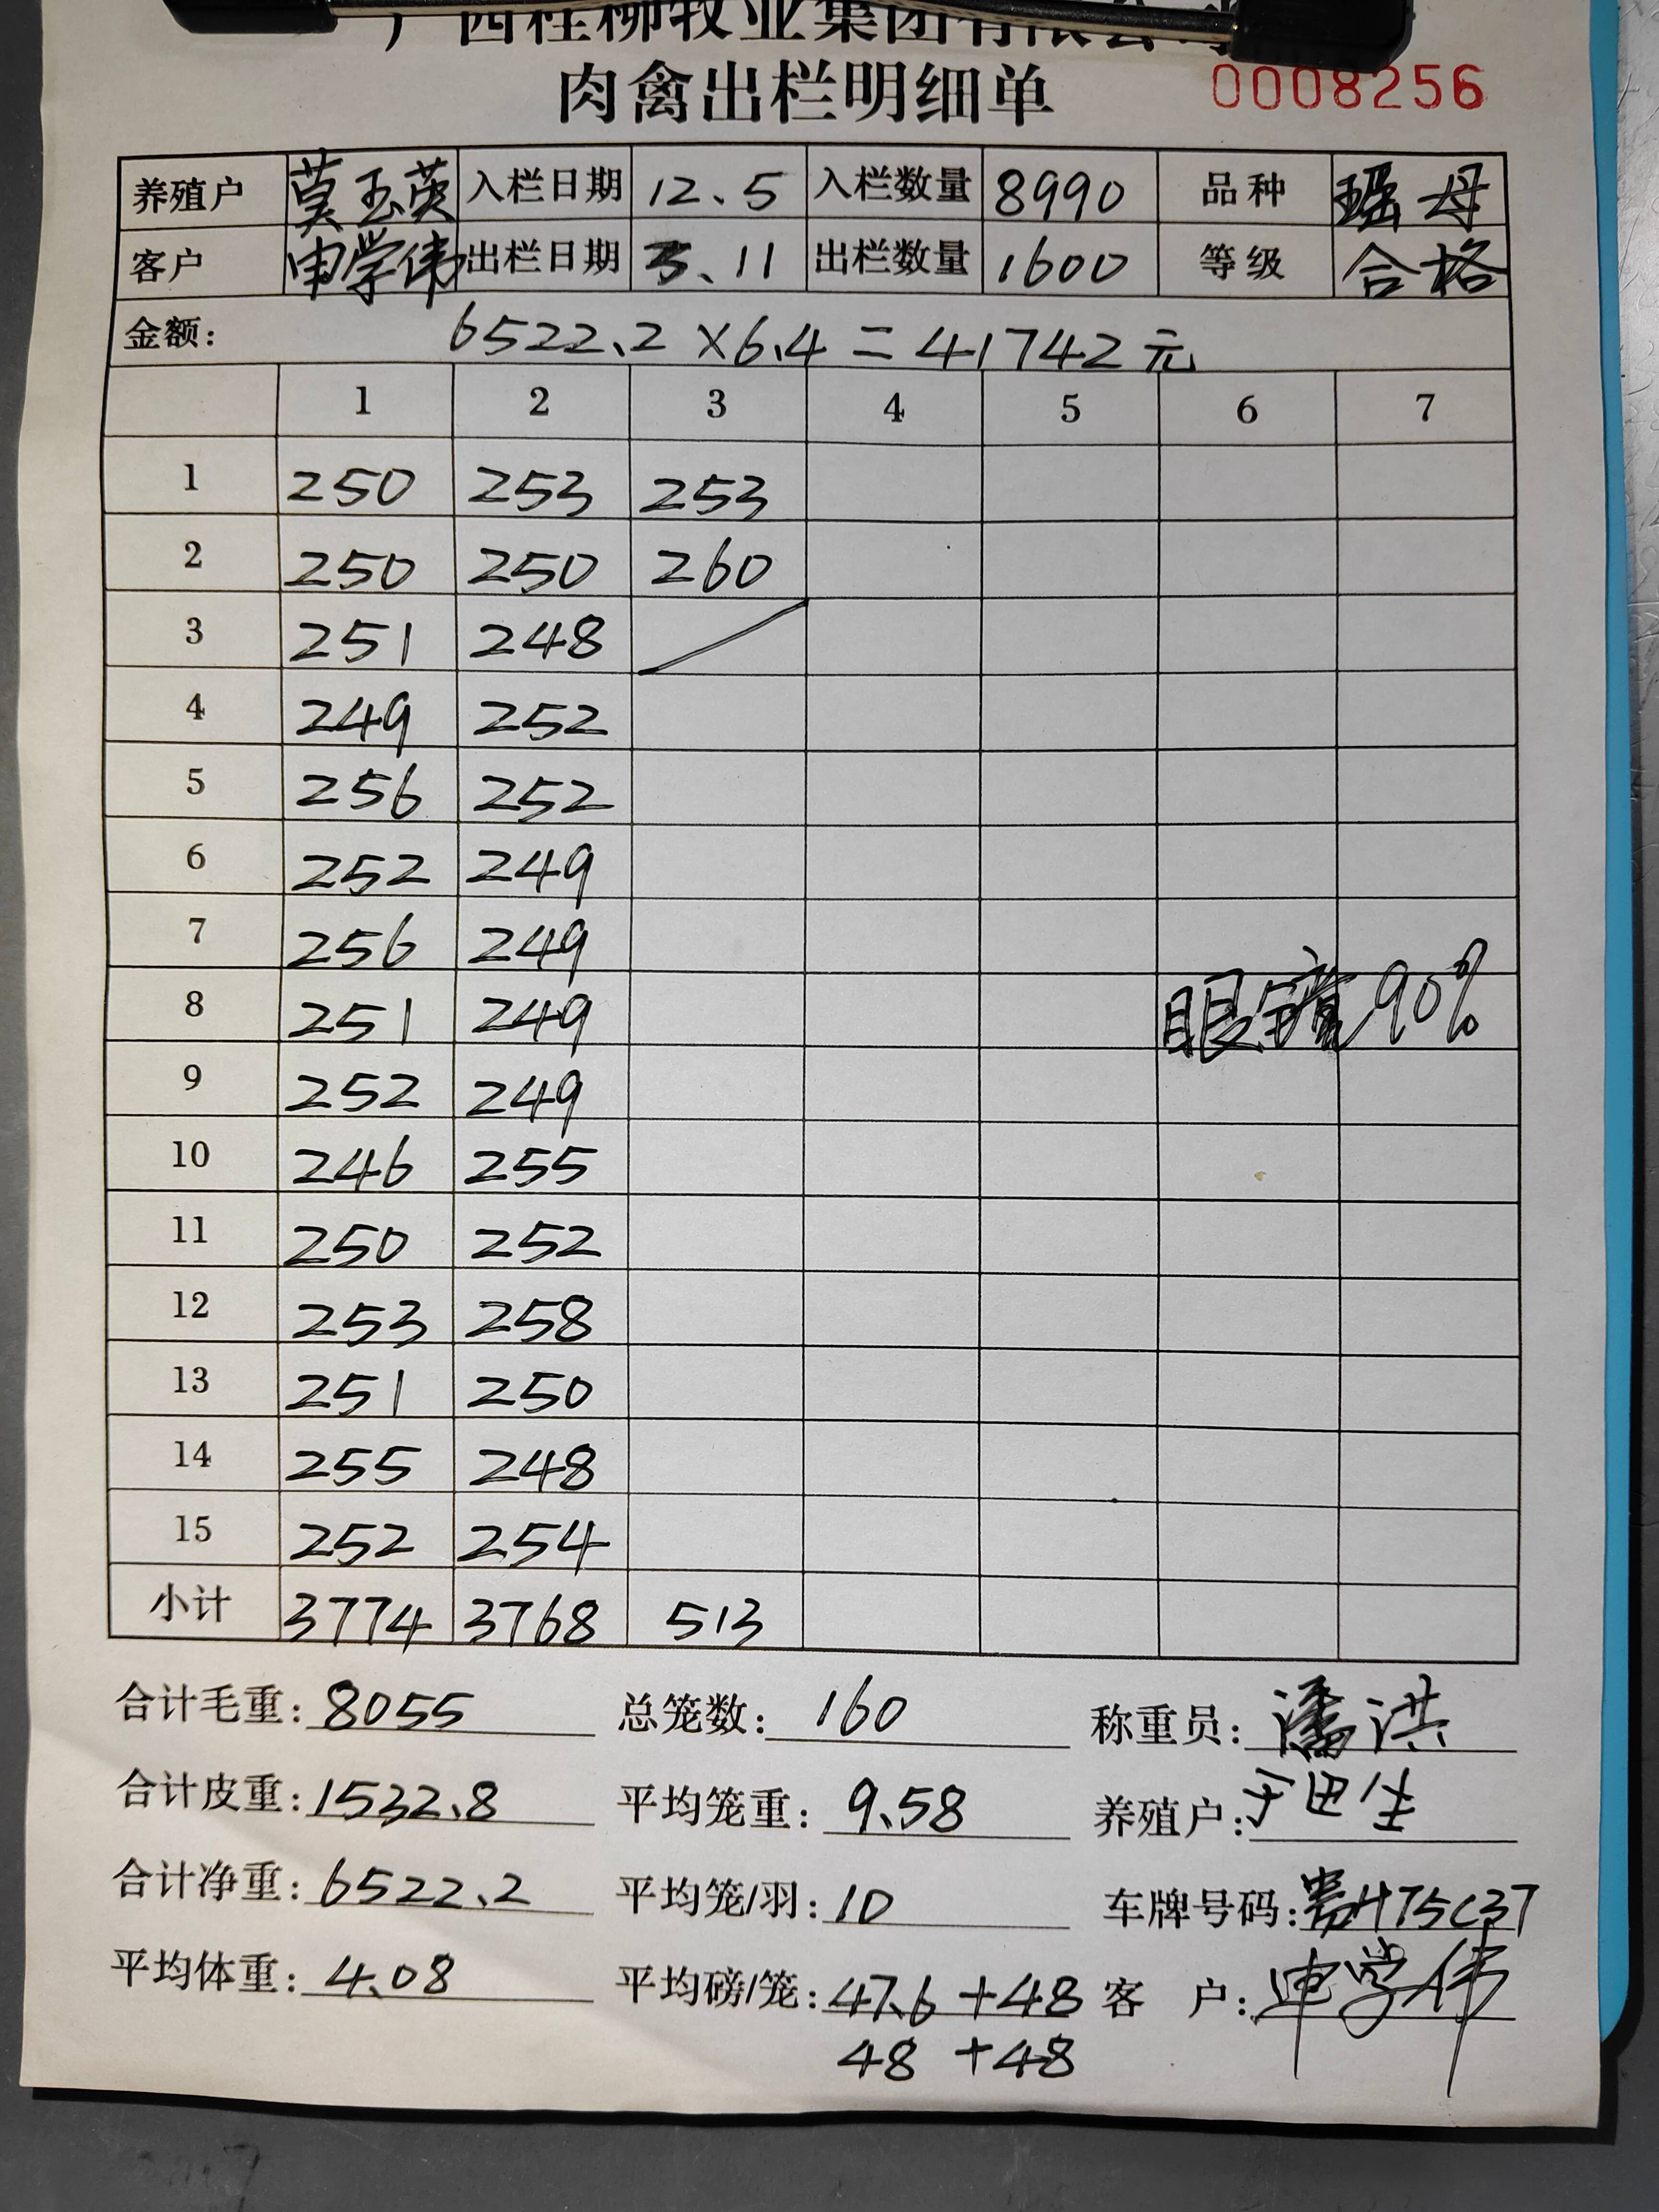 广西桂柳牧业集团有限公司
肉禽出栏明细单
0008256
养殖户 莫玉英 入栏日期 12.5 入栏数量 8990 品种 瑶母
客户 申学伟 出栏日期 3.11 出栏数量 1600 等级 合格
金额: 6522.2×6.4=41742元
1 2 3 4 5 6 7
1 250 253 253
2 250 250 260
3 251 248
4 249 252
5 256 252
6 252 249
7 256 249
8 251 249 眼镜90%
9 252 249
10 246 255
11 250 252
12 253 258
13 251 250
14 255 248
15 252 254
小计 3774 3768 513
合计毛重: 8055 总笼数: 160 称重员: 潘洪
合计皮重: 1532.8 平均笼重: 9.58 养殖户:
合计净重: 6522.2 平均笼/羽: 10 车牌号码:
平均体重: 4.08 平均磅/笼: 47.6+48 客户: 申学伟
48+48